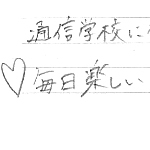 通信学校に
♡毎日楽しい